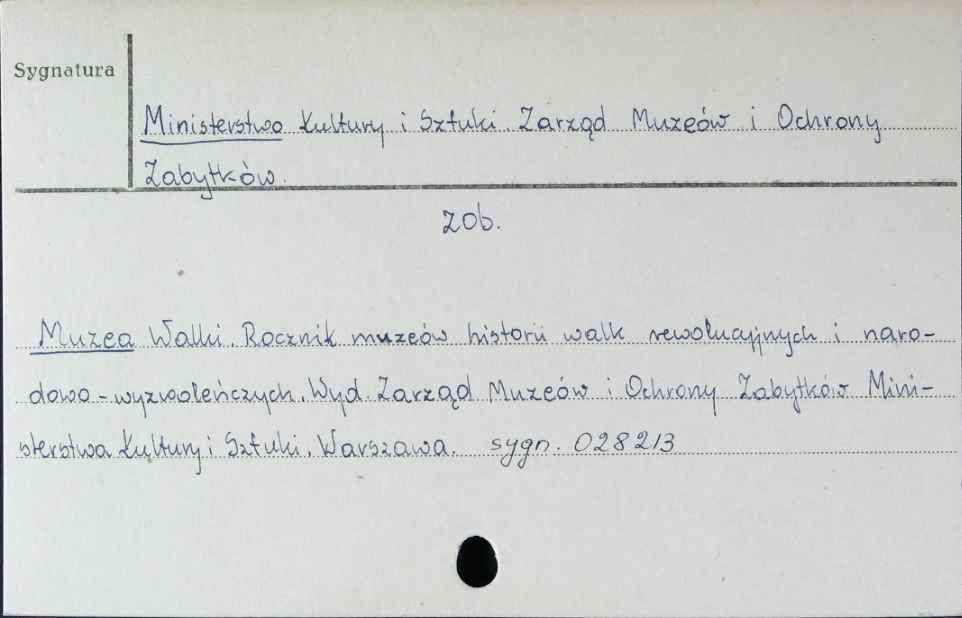 Sygnatura
Ministerstwo Kultury i Sztuki. Zarząd Muzeów i Ochrony
Zabytków.
zob.
Muzea Walki. Rocznik muzeów historii walk rewolucyjnych i naro-
dowo-wyzwoleńczych. Wyd. Zarząd Muzeów i Ochrony Zabytków Mini-
sterstwa Kultury i Sztuki. Warszawa. sygn. 028213